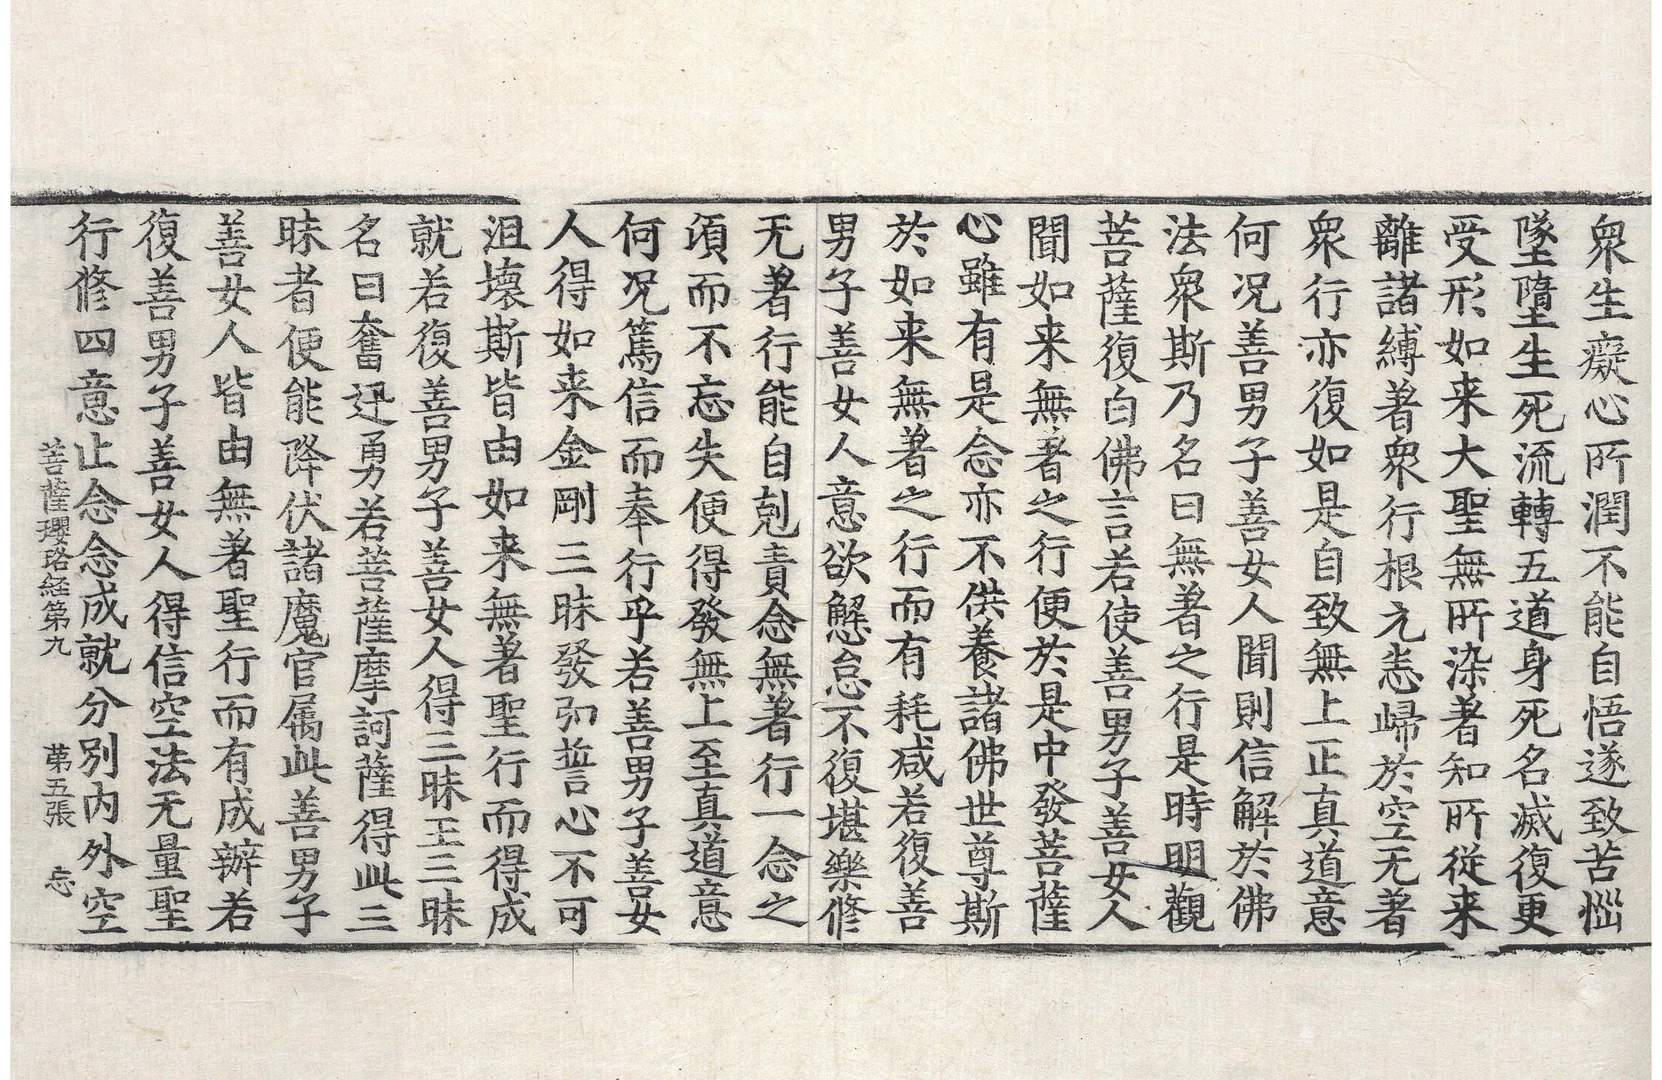 衆生癡心所潤不能自悟遂致苦惱
墜墮生死流轉五道身死名滅復更
受形如来大聖無所染著知所從来
離諸縛著衆行根元悉歸於空无著
衆行亦復如是自致無上正真道意
何况善男子善女人聞則信解於佛
法衆斯乃名曰無著之行是時明觀
菩薩復白佛言若使善男子善女人
聞如来無著之行便於是中發菩薩
心雖有是念亦不供養諸佛世尊斯
於如来無著之行而有耗减若復善
男子善女人意欲懈怠不復堪樂修
无著行能自剋責念無著行一念之
須而不忘失便得發無上至真道意
何况篤信而奉行乎若善男子善女
人得如来金剛三昧發弘誓心不可
沮壞斯皆由如来無著聖行而得成
就若復善男子善女人得三昧王三昧
名曰奮迅勇若菩薩摩訶薩得此三
昧者便能降伏諸魔官属此善男子
善女人皆由無著聖行而有成辦若
復善男子善女人得信空法无量聖
行修四意止念念成就分別内外空
菩薩瓔珞経第九 苐五張 忘